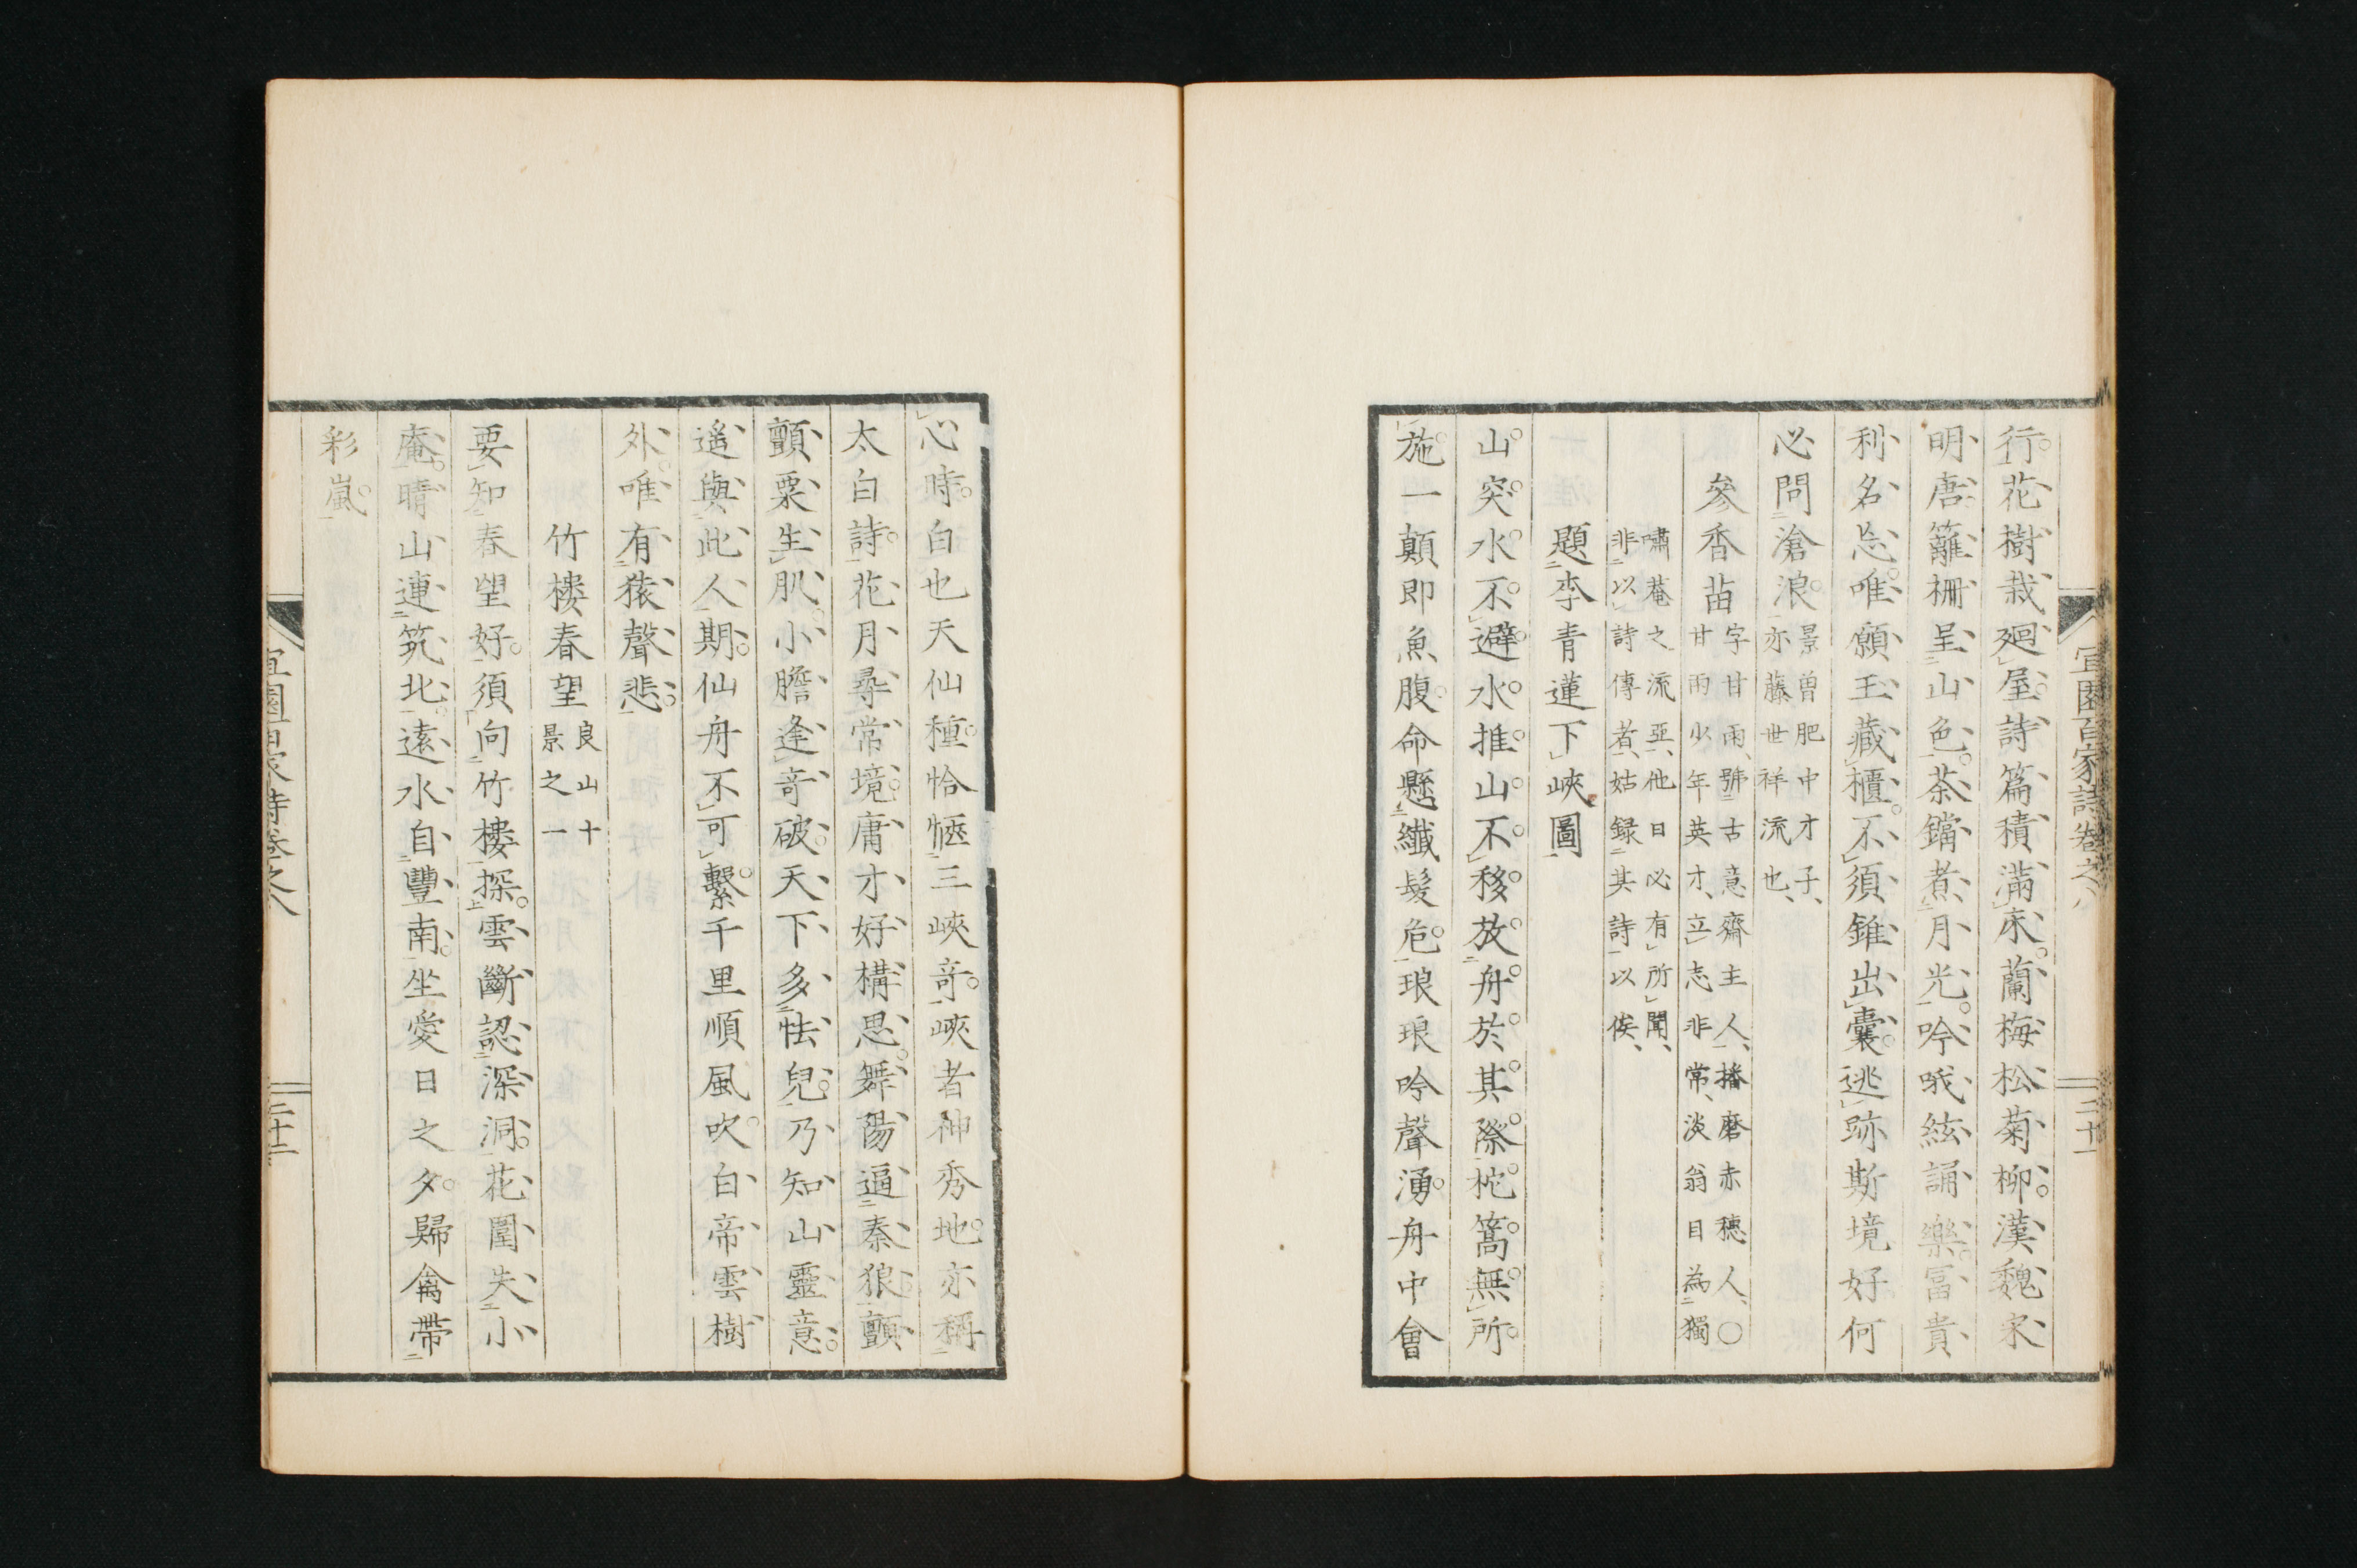 行花樹栽廻屋詩篇積滿床蘭梅松菊柳漢魏宋
明唐籬柵呈山色茶鐺煮月光吟哦絃誦樂冨貴
利名忘唯願玉藏櫃不須錐出囊逃跡斯境好何
必問滄浪景曽肥中才子、
亦藤世祥流也、
參香苗字甘雨、號古意齋主人、播磨赤穂人、○
甘雨少年英才、立志非常、淡翁目為獨
嘯菴之流亞、他日必有所聞、
非以詩傳者、姑録其詩以俟、
題李青蓮下峽圖
山突水不避水推山不移放舟於其際柁篙無所
施一顛即魚腹命懸纖髮危琅琅吟聲湧舟中會
宜園百家詩卷之八
二十一
心時白也天仙種恰愜三峽奇峽者神秀地亦稱
太白詩花月尋常境庸才好構思舞陽逼秦狼顫
顫粟生肌小膽逢奇破天下多怯兒乃知山靈意
遥與此人期仙舟不可繫千里順風吹白帝雲樹
外唯有猿聲悲
竹樓春望良山十
景之一
要知春望好須向竹樓探雲斷認深洞花圍失小
庵晴山連筑北遠水自豐南坐愛日之夕歸禽帶
彩嵐
宜園百家詩卷之八
二十二